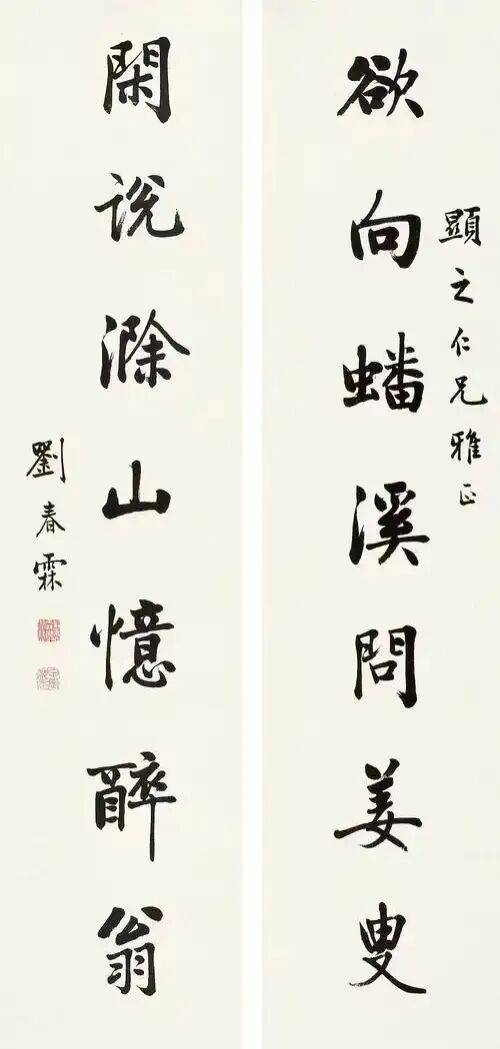 顯之仁兄雅正
欲向蟠溪問姜叟
閑說滁山憶醉翁
劉春霖